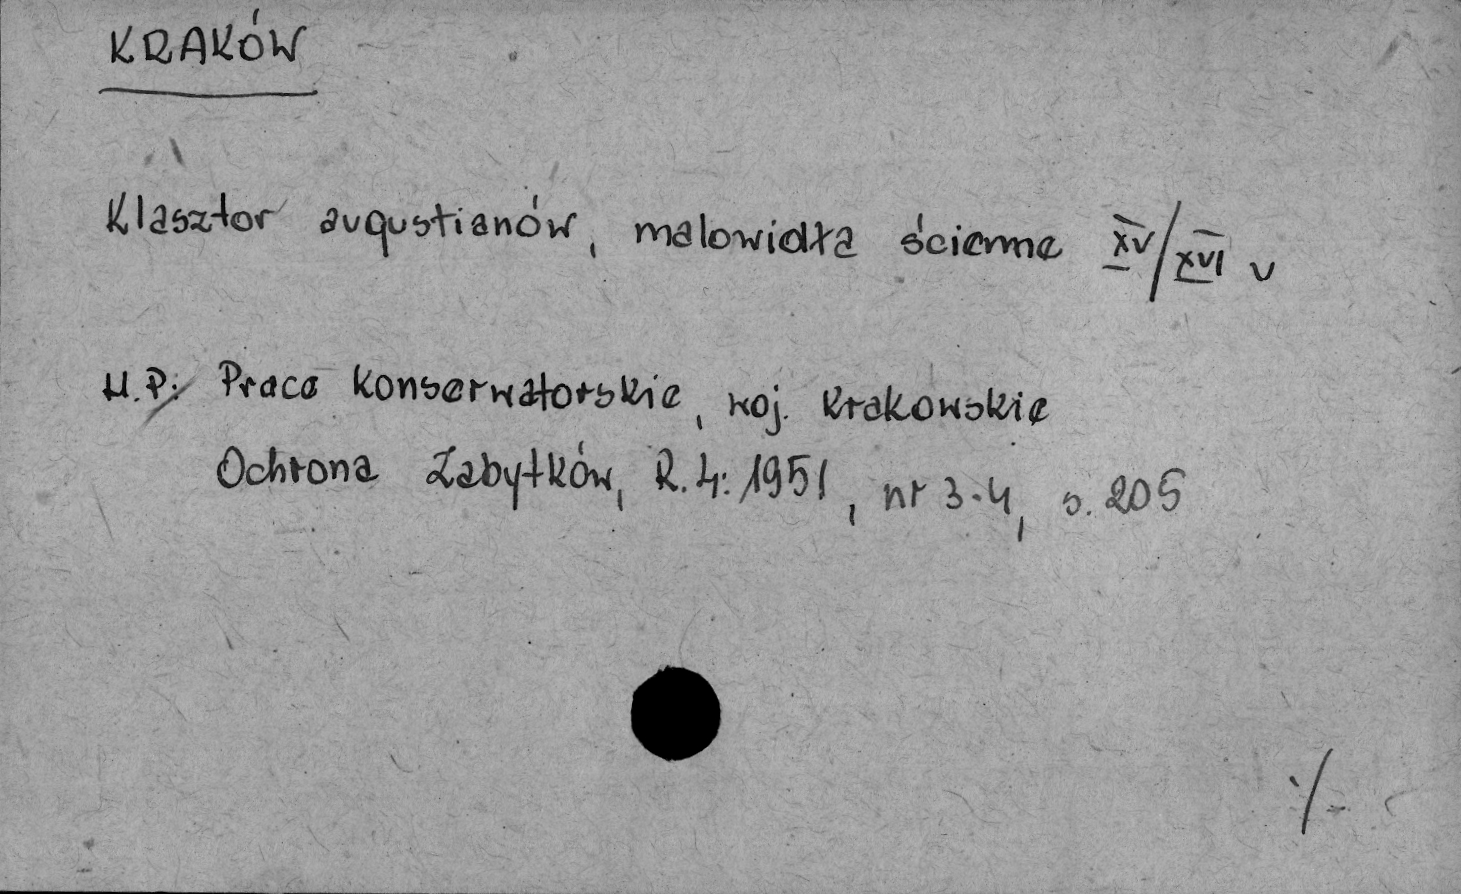 KRAKÓW
Klasztor augustianów, malowidła ścienne XV/XVI w
H.P: Prace konserwatorskie, woj. krakowskie
Ochrona Zabytków, R. 4: 1951, nr 3-4, s. 205
·/-